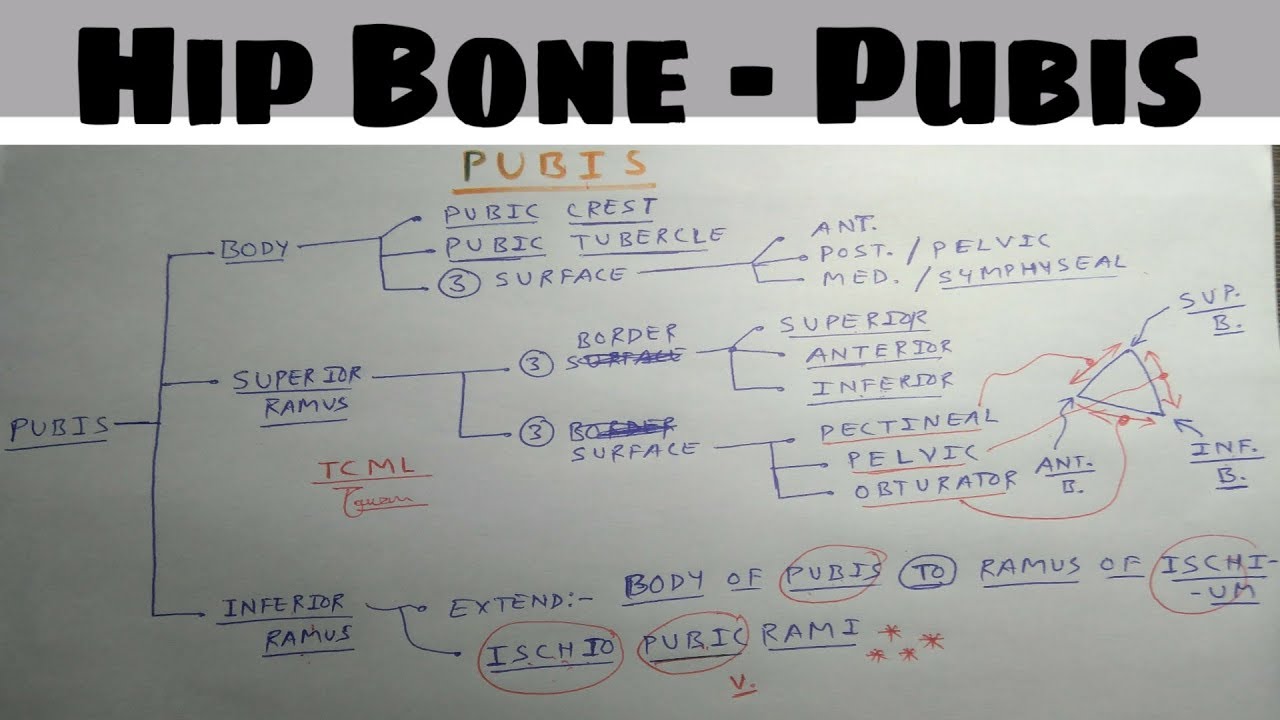 Hip Bone - Pubis
PUBIS
PUBIC CREST
BODY
PUBIC TUBERCLE
③ SURFACE
ANT.
POST. / PELVIC
MED. / SYMPHYSEAL
SUPERIOR
RAMUS
③ BORDER
SURFACE
SUPERIOR
ANTERIOR
INFERIOR
③ BORDER
SURFACE
PECTINEAL
PELVIC
OBTURATOR
SUP.
B.
ANT.
B.
INF.
B.
PUBIS
TCML
INFERIOR
RAMUS
EXTEND:- BODY OF PUBIS TO RAMUS OF ISCHI-
-UM
ISCHIO PUBIC RAMI
V.